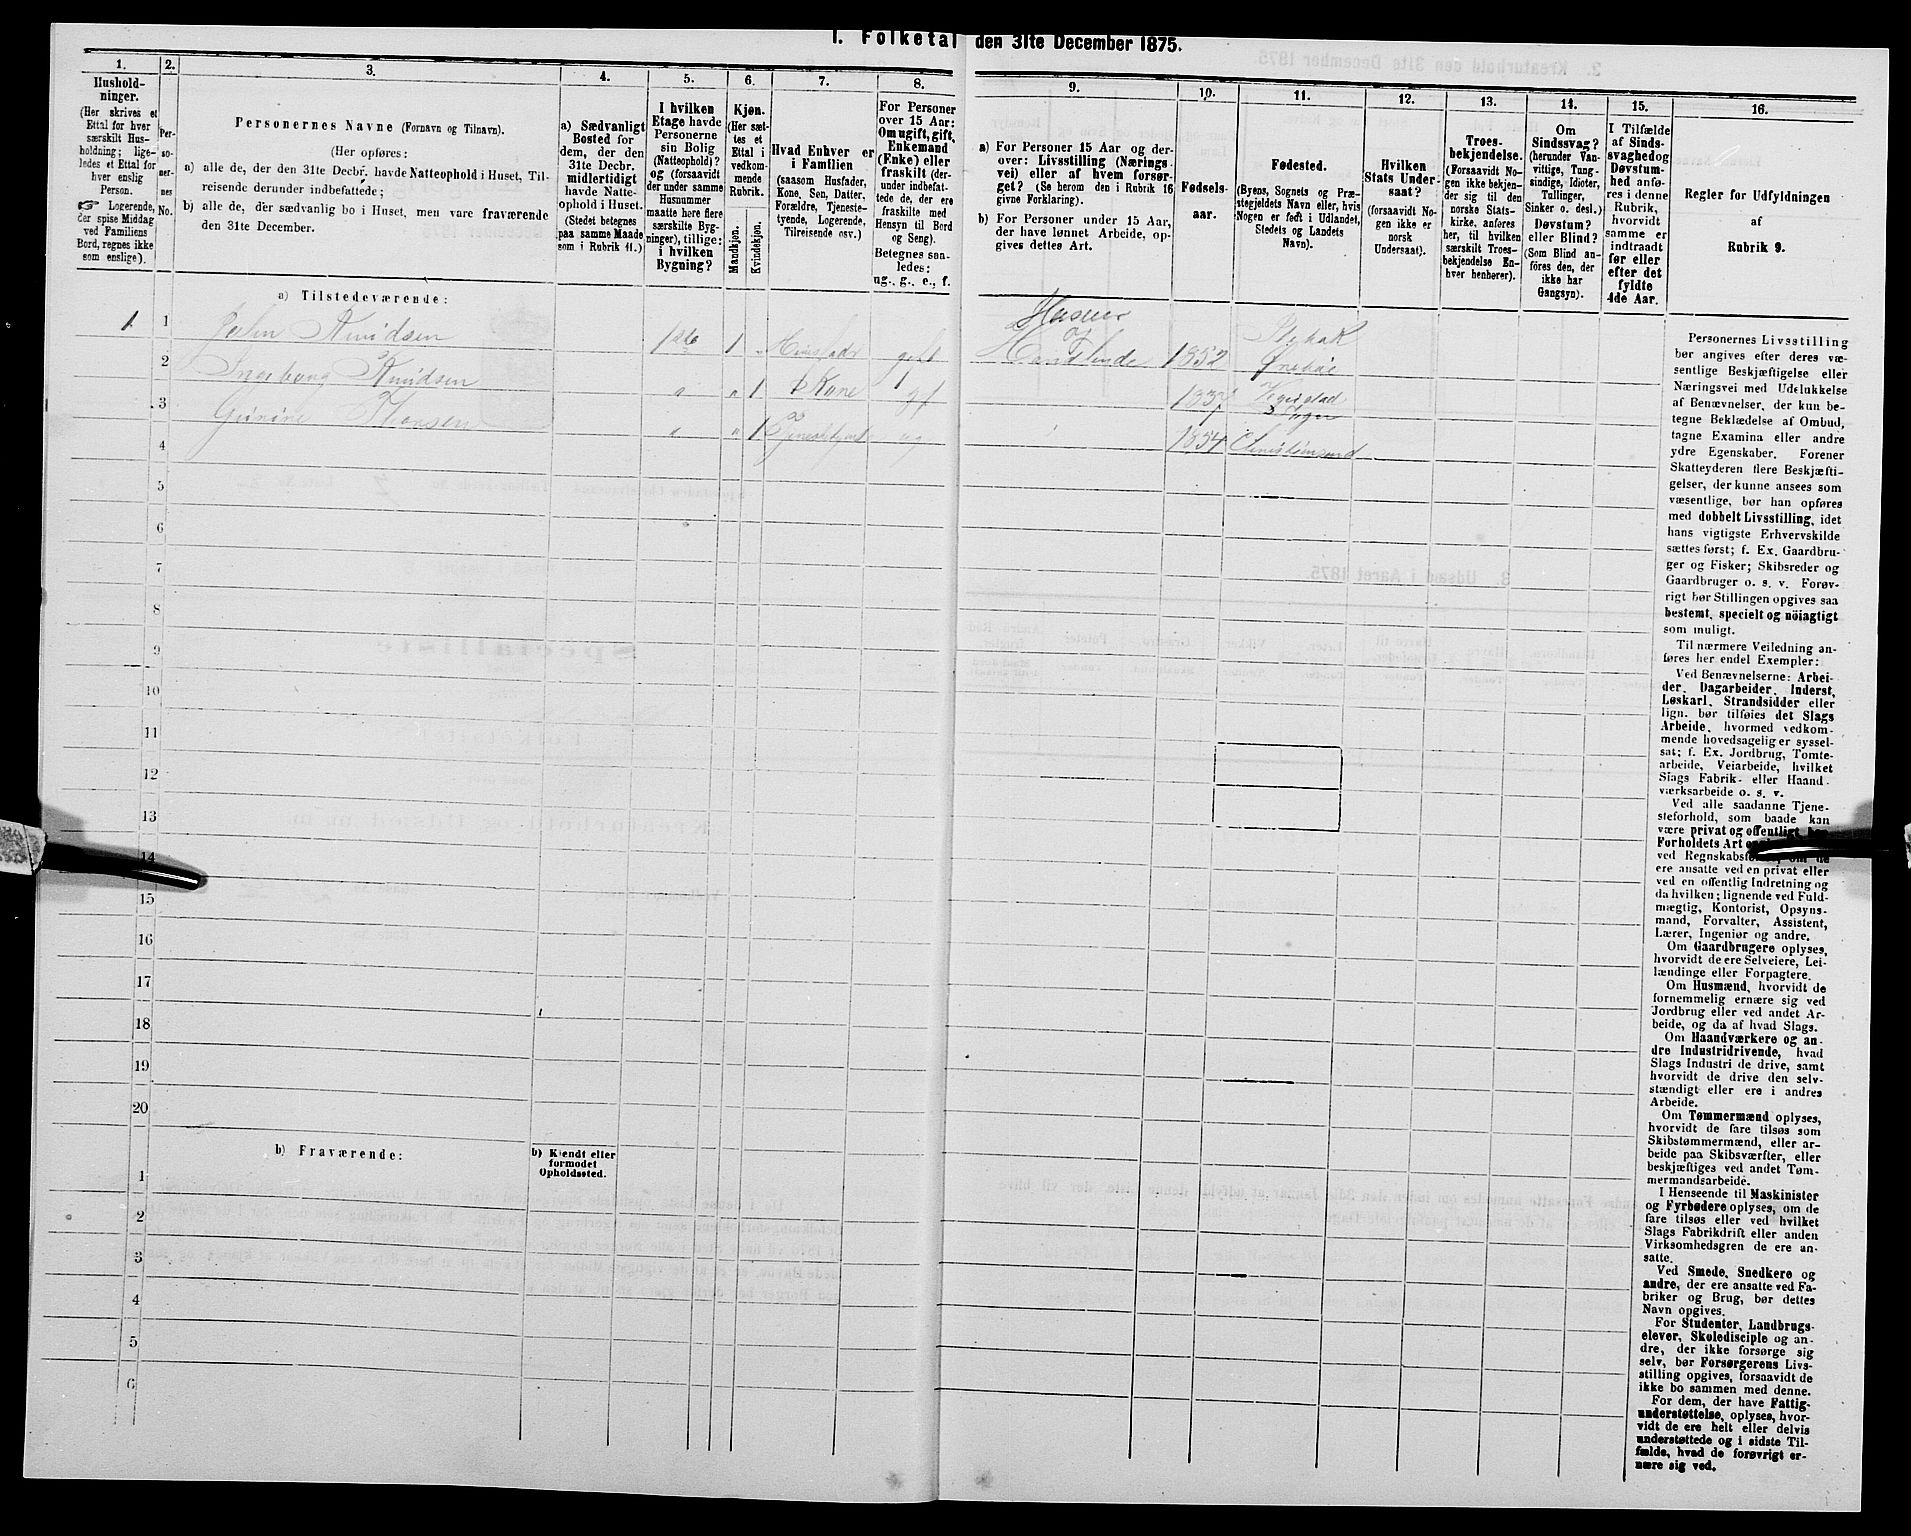 1. Folketal den 31te December 1875.
1.
Hushold-
ninger.
(Her skrives et
Ettal for hver
særskilt Hus-
holdning; lige-
ledes et Ettal for
hver enslig
Person.
☞ Logerende,
der spise Middag
ved Familiens
Bord, regnes ikke
som enslige).
2.
Per-
so-
ner-
nes
No.
3.
Personernes Navne (Fornavn og Tilnavn).
(Her opføres:
a) alle de, der den 31te Decbr. havde Natteophold i Huset, Til-
reisende derunder indbefattede;
b) alle de, der sædvanlig bo i Huset, men vare fraværende
den 31te December.
4.
a) Sædvanligt
Bosted for
dem, der den
31te Decbr.
midlertidigt
havde Natte-
ophold i Huset.
(Stedet betegnes
paa samme Maade
som i Rubrik 11.)
5.
I hvilken
Etage havde
Personerne
sin Bolig
(Natteophold)?
og (forsaavidt
der under samme
Husnummer
maatte høre flere
særskilte Byg-
ninger), tillige:
i hvilken
Bygning?
6.
Kjøn.
(Her sæt-
tes et
Ettal i
vedkom-
mende
Rubrik.
Mandkjøn.
Kvindekjøn.
7.
Hvad Enhver er
i Familien
(saasom Husfader,
Kone, Søn, Datter,
Forældre, Tjeneste-
tyende, Logerende,
Tilreisende osv.)
8.
For Personer
over 15 Aar:
Om ugift, gift,
Enkemand
(Enke) eller
fraskilt (der-
under indbefat-
tede de, der ere
fraskilte med
Hensyn til Bord
og Seng).
Betegnes saa-
ledes:
ug., g., e., f.
9.
a) For Personer 15 Aar og der-
over: Livsstilling (Nærings-
vei) eller af hvem forsør-
get? (Se herom den i Rubrik 16
givne Forklaring).
b) For Personer under 15 Aar,
der have lønnet Arbeide, op-
gives dettes Art.
10.
Fødsels-
aar.
11.
Fødested.
(Byens, Sognets og Præ-
stegjeldets Navn eller, hvis
Nogen er født i Udlandet,
Stedets og Landets
Navn).
12.
Hvilken
Stats Under-
saat?
(forsaavidt No-
gen ikke er
norsk
Undersaat).
13.
Troes-
bekjendelse.
(Forsaavidt No-
gen ikke bekjen-
der sig til den
norske Stats-
kirke, anføres
her, til hvilken
særskilt Troes-
bekjendelse En-
hver henhører).
14.
Om
Sindssvag?
(herunder Van-
vittige, Tung-
sindige, Idioter,
Tullinger,
Sinker o. desl.)
Døvstum?
eller Blind?
(Som Blind an-
føres den, der
ikke har
Gangsyn).
15.
I Tilfælde
af Sinds-
svaghed og
Døvstum-
hed anfø-
res i denne
Rubrik,
hvorvidt
samme er
indtraadt
før eller
efter det
fyldte
4de Aar.
16.
Regler for Udfyldningen
af
Rubrik 9.
a) Tilstedeværende:
1 1 John Knudsen 1 1 gift 1852
2 Ingeborg Knudsen " " 1 Kone gf
3 Thorsen " " 1 ug 1854 Christiansund
4
5
6
7
8
9
10
11
12
13
14
15
16
17
18
19
20
b) Fraværende:
b) Kjendt eller
formodet
Opholdssted.
1
2
3
4
5
6
Personernes Livsstilling
bør angives efter deres væ-
sentlige Beskjæftigelse eller
Næringsvei med Udelukkelse
af Benævnelser, der kun be-
tegne Beklædelse af Ombud,
tagne Examina eller andre
ydre Egenskaber. Forener
Skatteyderen flere Beskjæfti-
gelser, der kunne ansees som
væsentlige, bør han opføres
med dobbelt Livsstilling, idet
hans vigtigste Erhvervskilde
sættes først; f. Ex. Gaardbru-
ger og Fisker; Skibsreder og
Gaardbruger o. s. v. Forøv-
rigt bør Stillingen opgives saa
bestemt, specielt og nöiagtigt
som muligt.
Til nærmere Veiledning an-
føres her endel Exempler:
Ved Benævnelserne: Arbei-
der, Dagarbeider, Inderst,
Løskarl, Strandsidder eller
lign. bør tilføies det Slags
Arbeide, hvormed vedkom-
mende hovedsagelig er syssel-
sat; f. Ex. Jordbrug, Tomte-
arbeide, Veiarbeide, hvilket
Slags Fabrik- eller Haand-
værksarbeide o. s. v.
Ved alle saadanne Tjene-
steforhold, som baade kan
være privat og offentligt, bør
Forholdets Art
ved om de
ere ansatte ved en privat eller
ved en offentlig Indretning og
da hvilken; lignende ved Fuld-
mægtig, Kontorist, Opsyns-
mand, Forvalter, Assistent,
Lærer, Ingeniør og andre.
Om Gaardbrugere oplyses,
hvorvidt de ere Selveiere, Lei-
lændinge eller Forpagtere.
Om Husmænd, hvorvidt de
fornemmelig ernære sig ved
Jordbrug eller ved andet Ar-
beide, og da af hvad Slags.
Om Haandværkere og an-
dre Industridrivende, hvad
Slags Industri de drive, samt
hvorvidt de drive den selv-
stændigt eller ere i andres
Arbeide.
Om Tømmermænd oplyses,
hvorvidt de fare tilsøs som
Skibstømmermænd, eller ar-
beide paa Skibsværfter, eller
beskjæftiges ved andet Tøm-
mermandsarbeide.
I Henseende til Maskinister
og Fyrbødere oplyses, om de
fare tilsøs eller ved hvilket
Slags Fabrikdrift eller anden
Virksomhedsgren de ere an-
satte.
Ved Smede, Snedkere og
andre, der ere ansatte ved Fa-
briker og Brug, bør dettes
Navn opgives.
For Studenter, Landbrugs-
elever, Skoledisciple og an-
dre, der ikke forsørge sig
selv, bør Forsørgerens Livs-
stilling opgives, forsaavidt de
ikke bo sammen med denne.
For dem, der have Fattig-
understøttelse, oplyses, hvor-
vidt de ere helt eller delvis
understøttede og i sidste Til-
fælde, hvad de forøvrigt er-
nære sig ved.